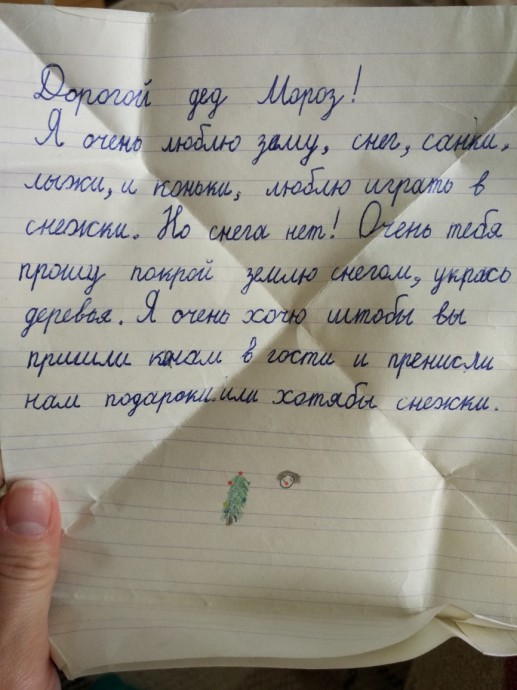 Дорогой дед Мороз!
Я очень люблю зиму, снег, санки,
лыжи, и коньки, люблю играть в
снежки. Но снега нет! Очень тебя
прошу покрой землю снегом, укрась
деревья. Я очень хочю штобы вы
пришли к нам в гости и пренисли
нам подароки или хотябы снежки.